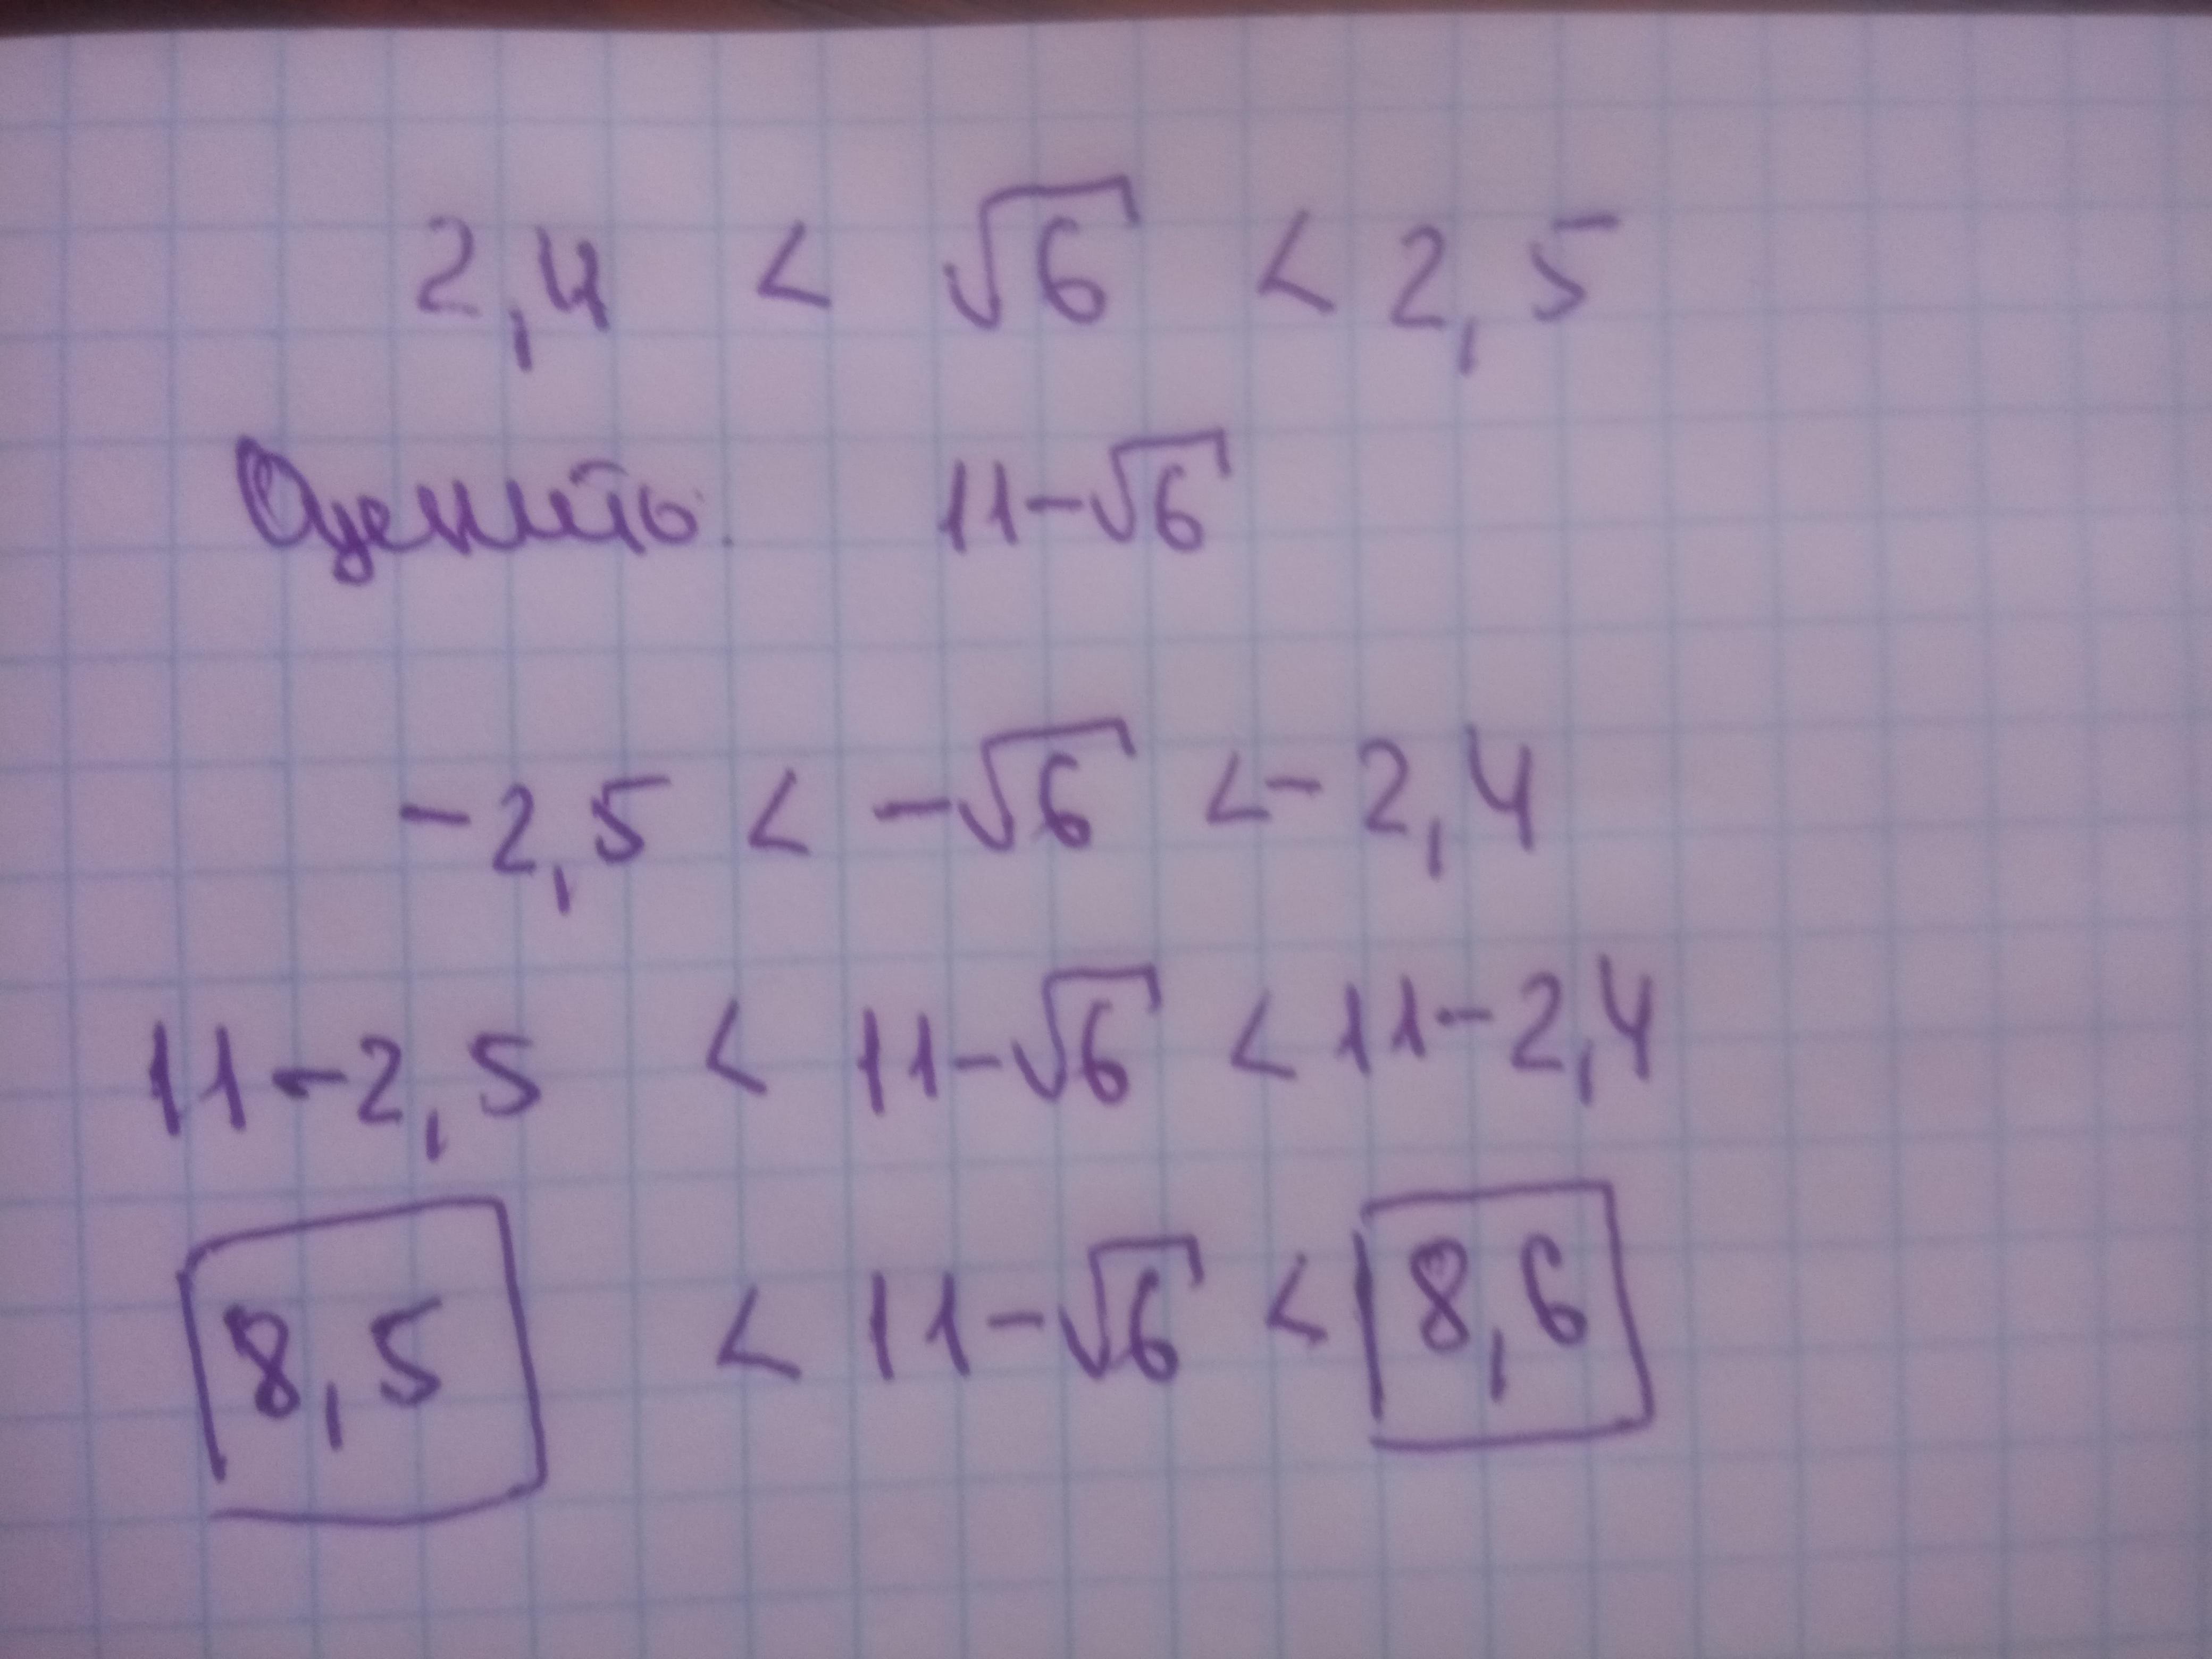 2,4 < √6 < 2,5
Оценить. 11-√6
-2,5 < -√6 <-2,4
11-2,5 < 11-√6 < 11-2,4
8,5 < 11-√6 < 8,6